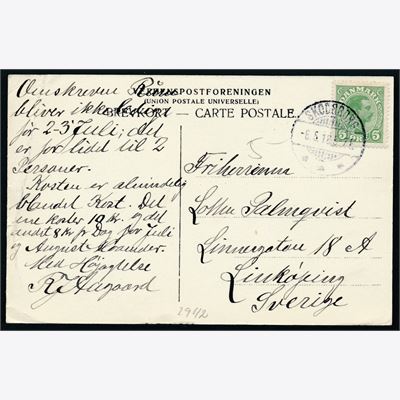 Omskrevne Rum
VERDENSPOSTFORENINGEN
(UNION POSTALE UNIVERSELLE)
BREVKORT - CARTE POSTALE.
bliver ikke ledige
før 2-3 Juli; det
er for lidt til 2
Personer.
Kosten er almindelig
blandet Kost. Det
ene koster 10 kr. og det
andet 8 kr pr Dag for Juli
og August Maaneder.
Med Højagtelse
Aagaard
DANMARK
5 5
SKODSBORG
Friherrinna
Lotten Palmqvist
Linnégatan 18 A
Linköping
Sverige
2942